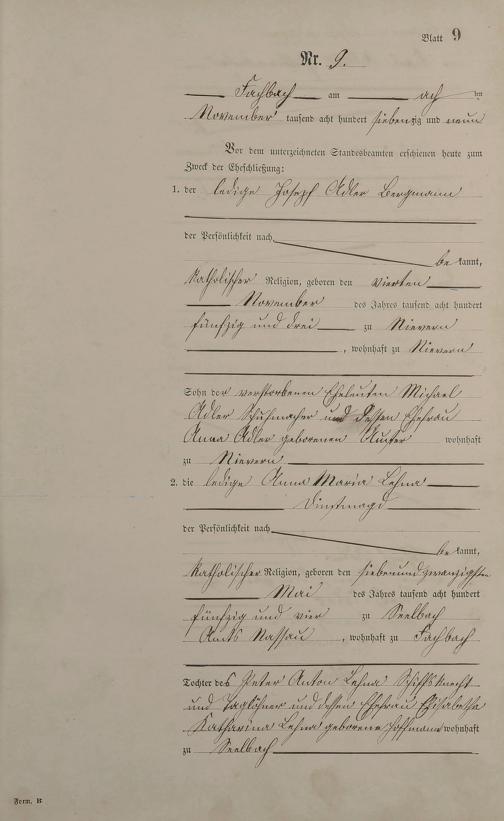 Blatt 9
Nr. 9.
Fachbach am acht ten
November tausend acht hundert siebenzig und neun
Vor dem unterzeichneten Standesbeamten erschienen heute zum
Zweck der Eheschließung:
1. der ledige Joseph Adler Bergmann
der Persönlichkeit nach
be kannt,
katholischer Religion, geboren den vierten
November des Jahres tausend acht hundert
fünfzig und drei zu Nievern
, wohnhaft zu Nievern
Sohn der verstorbenen Eheleuten Michael
Adler Schuhmacher und dessen Ehefrau
Anna Adler geborenen wohnhaft
zu Nievern
2. die ledige Anna Maria Lehna
Dinstmagd
der Persönlichkeit nach
be kannt,
katholischer Religion, geboren den siebenundzwanzigsten
Mai des Jahres tausend acht hundert
fünfzig und vier zu Seelbach
Amts Nassau , wohnhaft zu Fachbach
Tochter des Peter Anton Lehna Schiffsknecht
und Taglöhner und dessen Ehefrau Elisabetha
Katharina Lehna geborene Hoffmann wohnhaft
zu Seelbach
Form. B